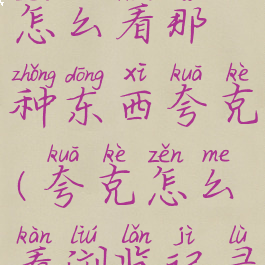 怎么看那
zhǒng dōng xī kuā kè
种东西夸克
kuā kè zěn me
(夸克怎么
kàn liú lǎn jì lù
看浏览记录